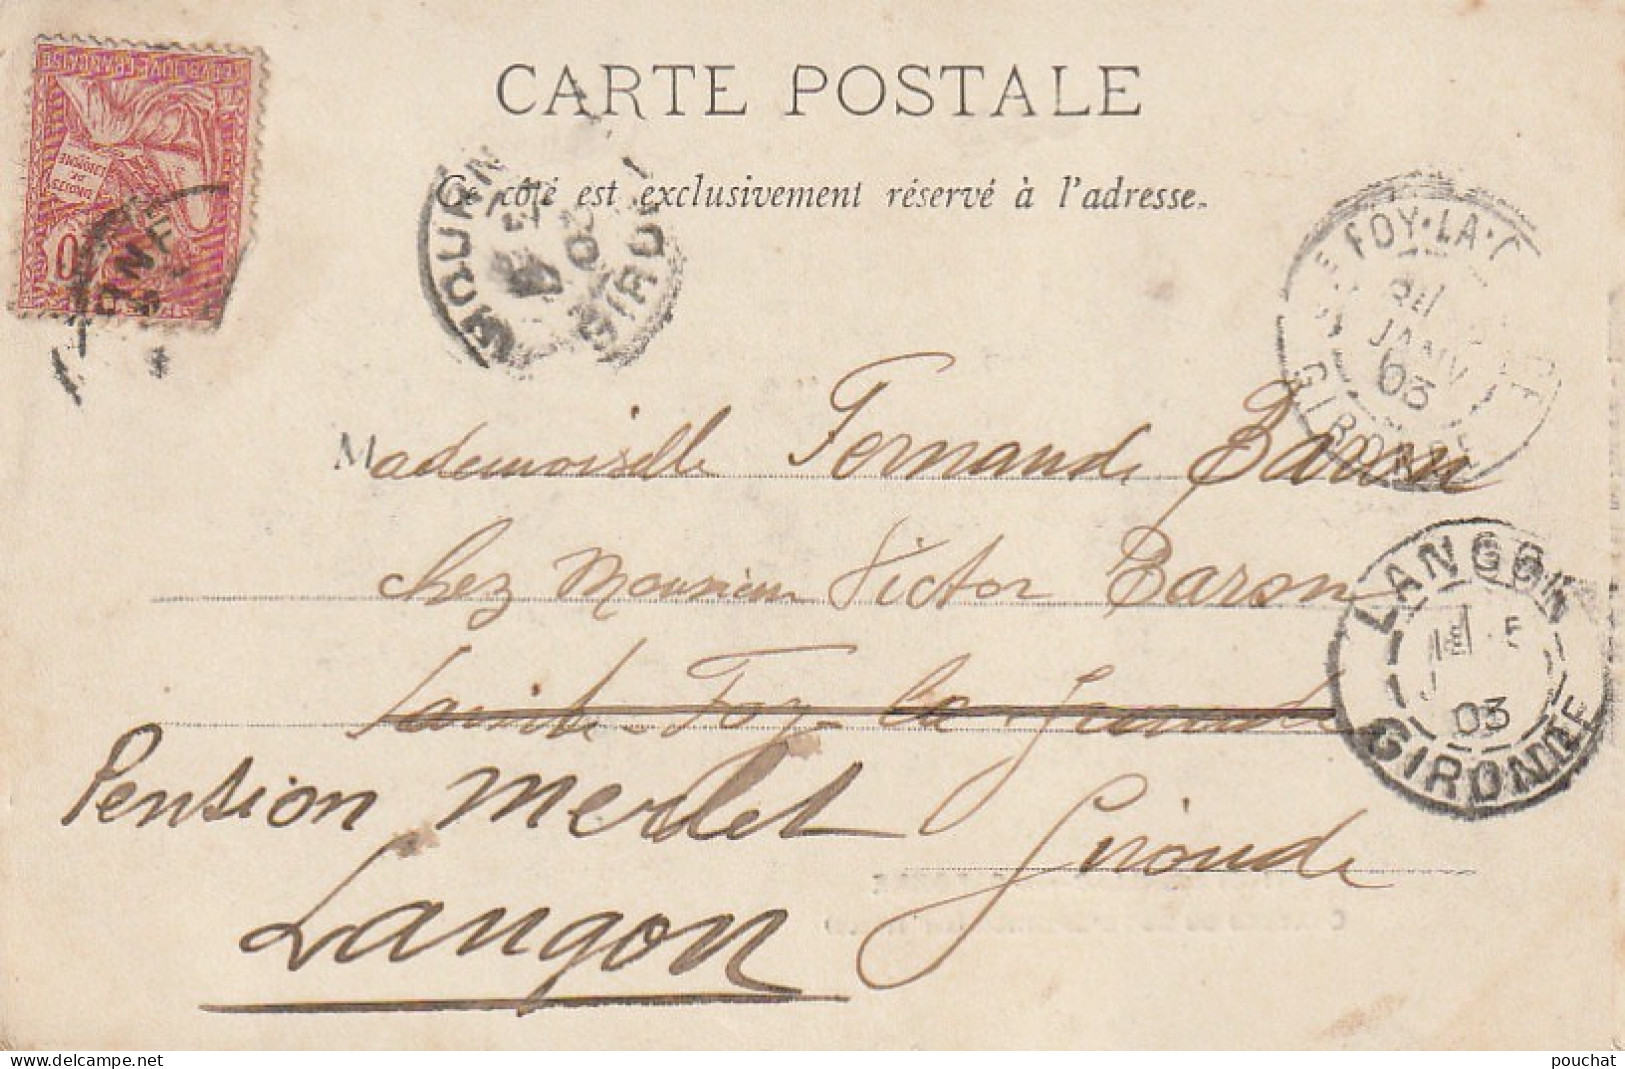 CARTE POSTALE
Ce côté est exclusivement réservé à l'adresse.
REPUBLIQUE FRANÇAISE
DROITS
DE
L'HOMME
GIRONDE
03
FOY-LA-G
JANV
03
GIRONDE
Mademoiselle Fernande Baron
chez Monsieur Victor Baron
Sainte Foy la Grande
Gironde
Pension Merlet
Langon
LANGON
03
GIRONDE
pouchat